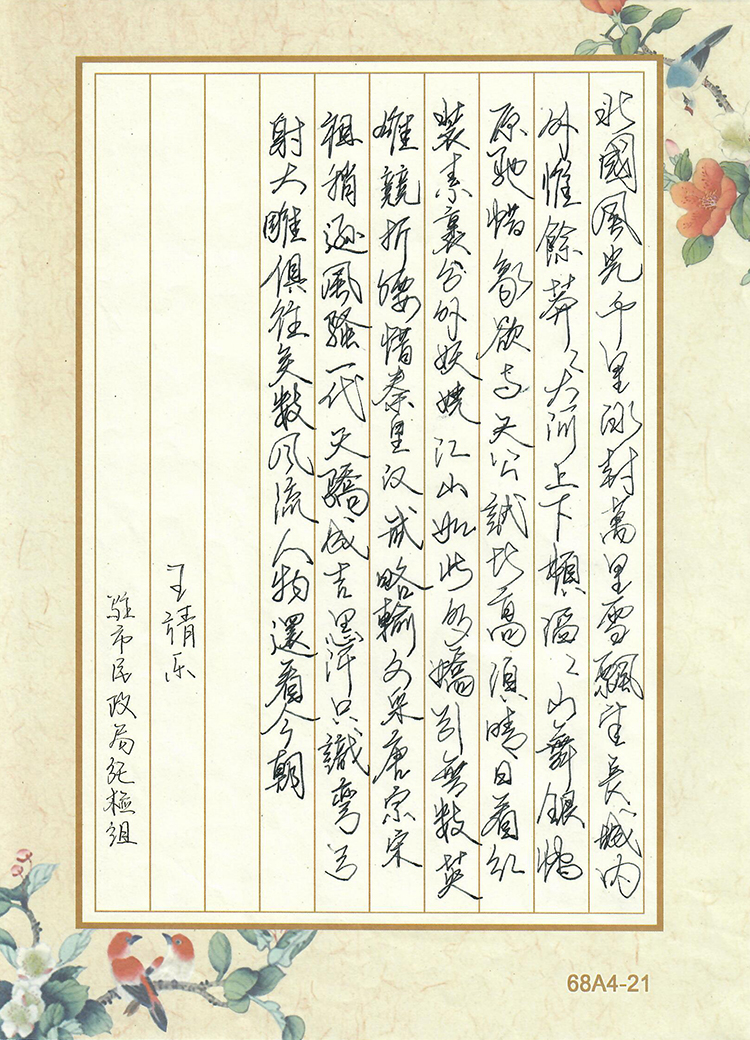 北國風光千里冰封萬里雪飄望長城内
外惟餘莽〻大河上下頓滔〻山舞銀蛇
原馳蜡象欲与天公試比高須晴日看红
裝素裹分外妖娆江山如此多嬌引無数英
雄競折腰惜秦皇汉武略輸文采唐宗宋
祖稍逊風騷一代天驕成吉思汗只識彎弓
射大雕俱往矣数风流人物還看今朝
王靖乐
驻市民政局纪检组
68A4-21